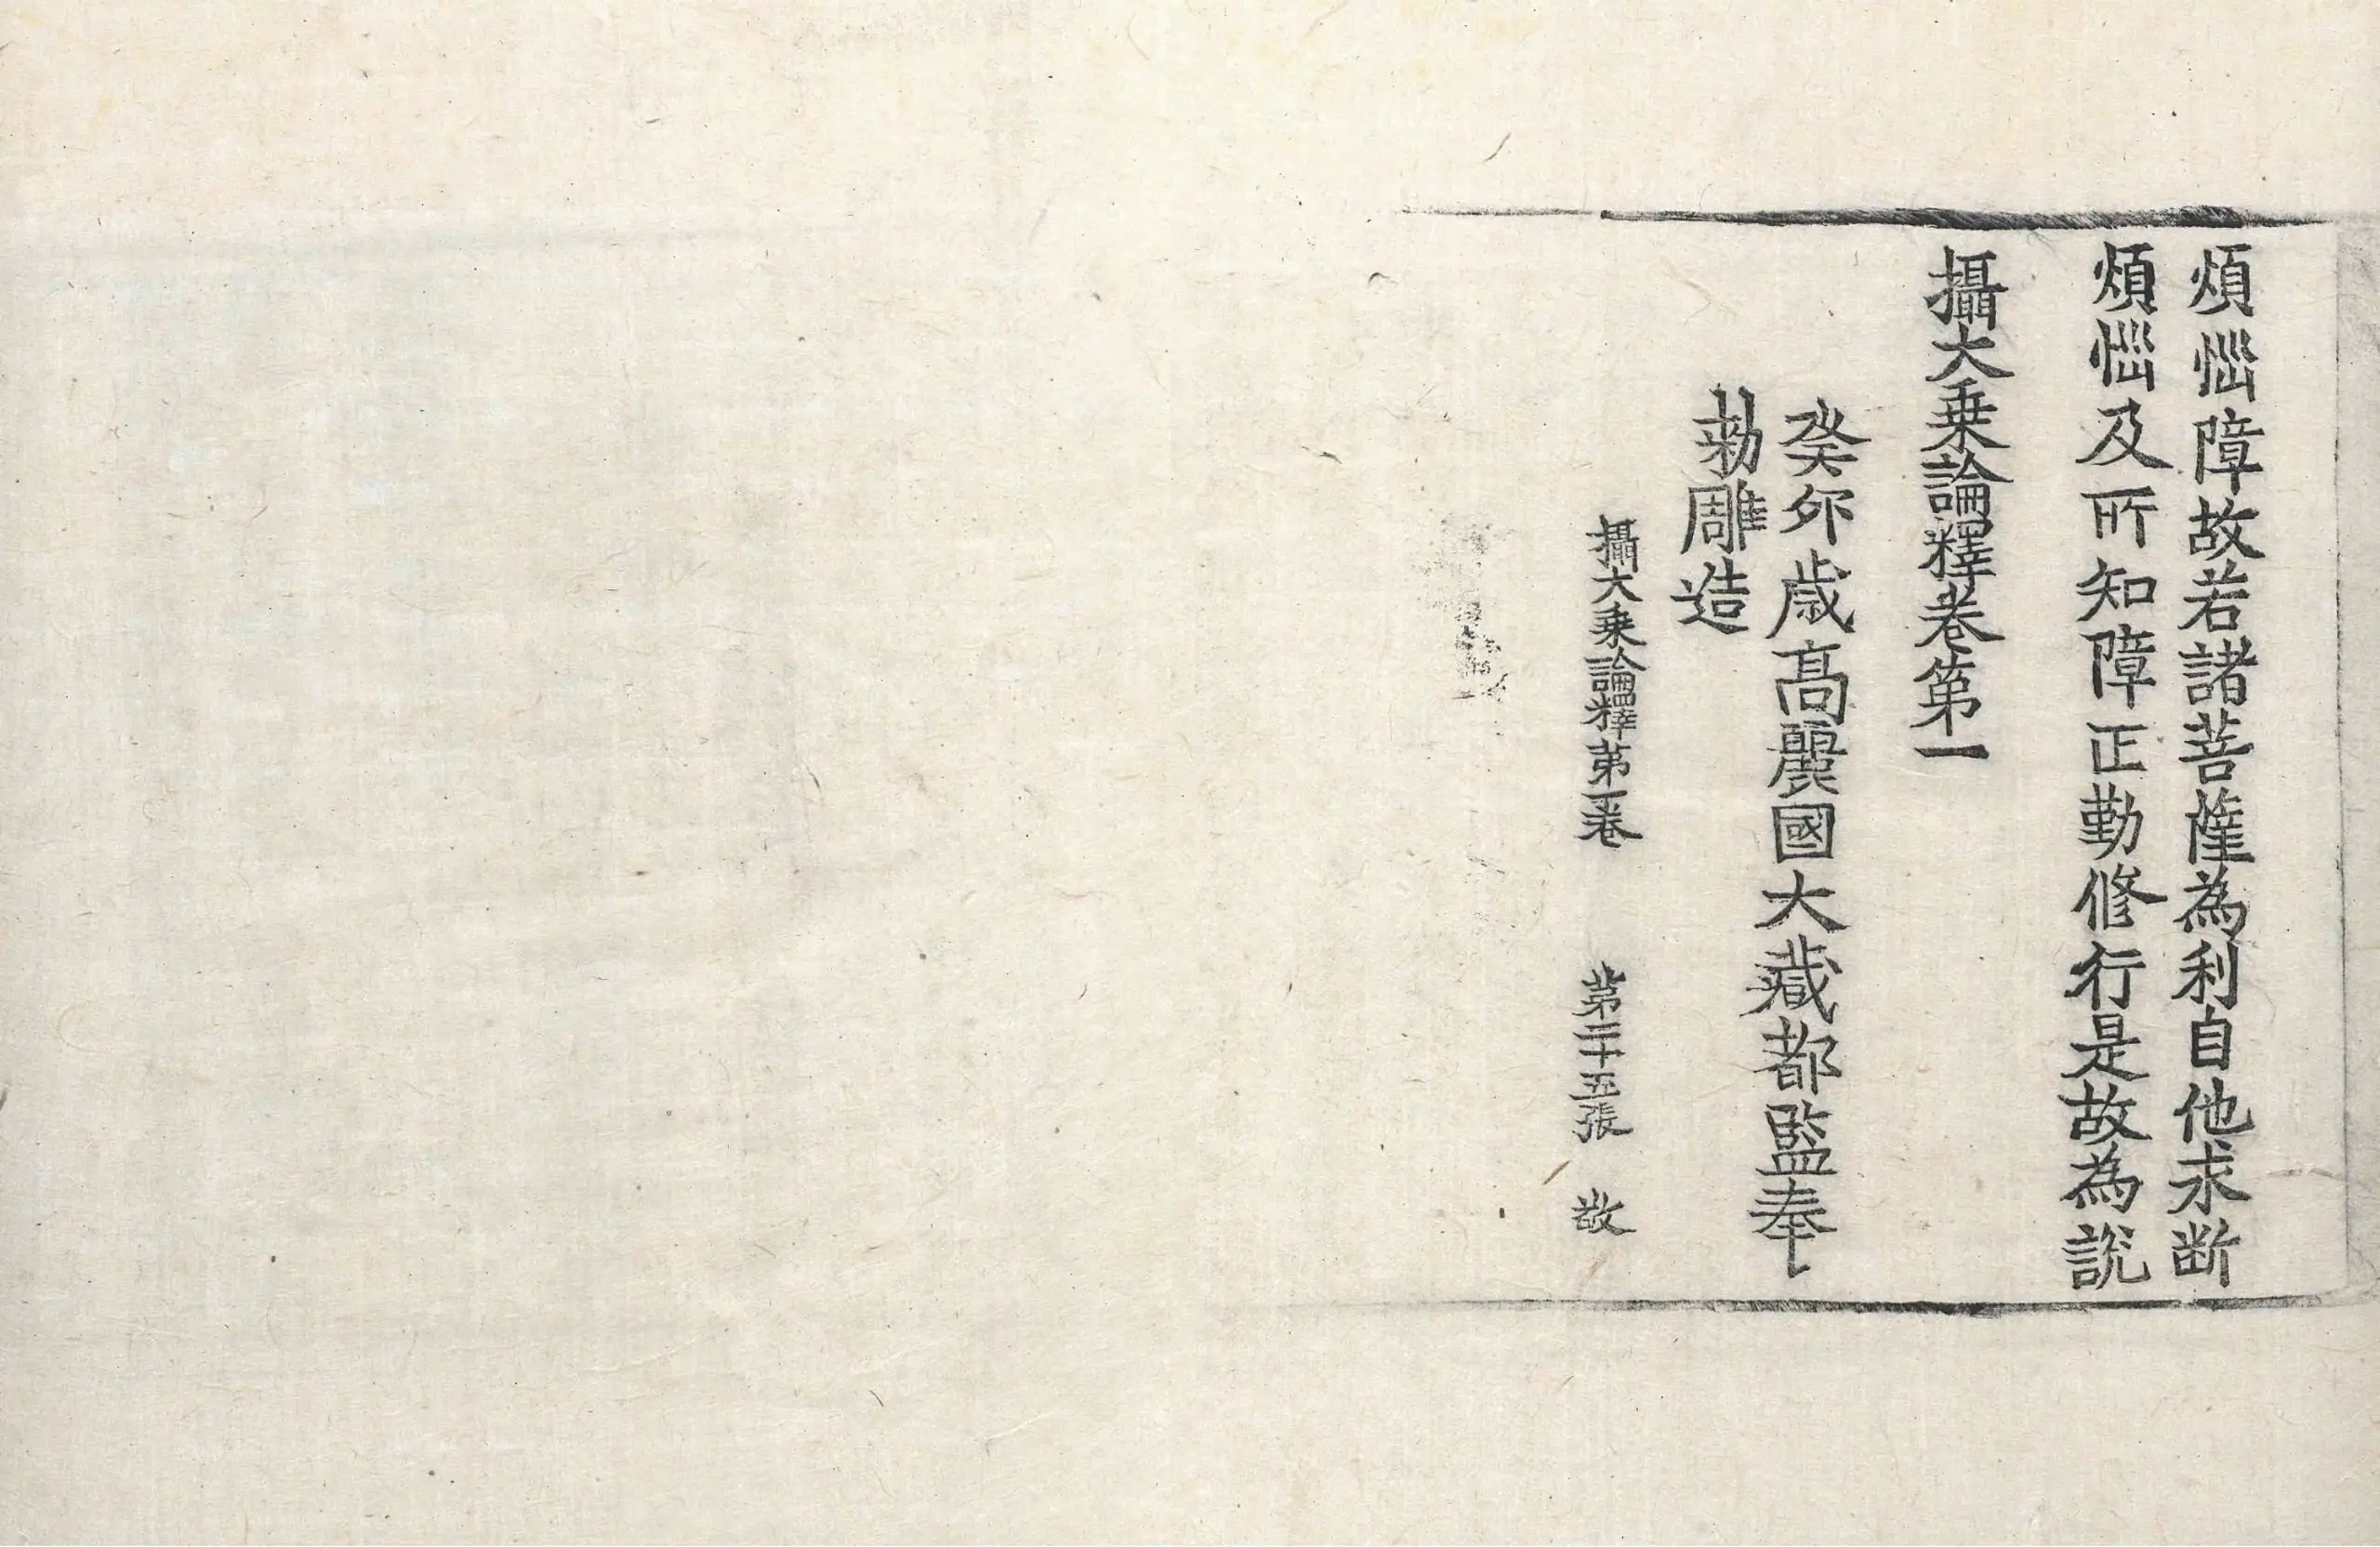 煩惱障故若諸菩薩為利自他求断
煩惱及所知障正勤修行是故為說
攝大乗論釋卷第一
癸夘歳髙麗國大藏都監奉
勑雕造
攝大乗論釋第一卷 第二十五張 敢